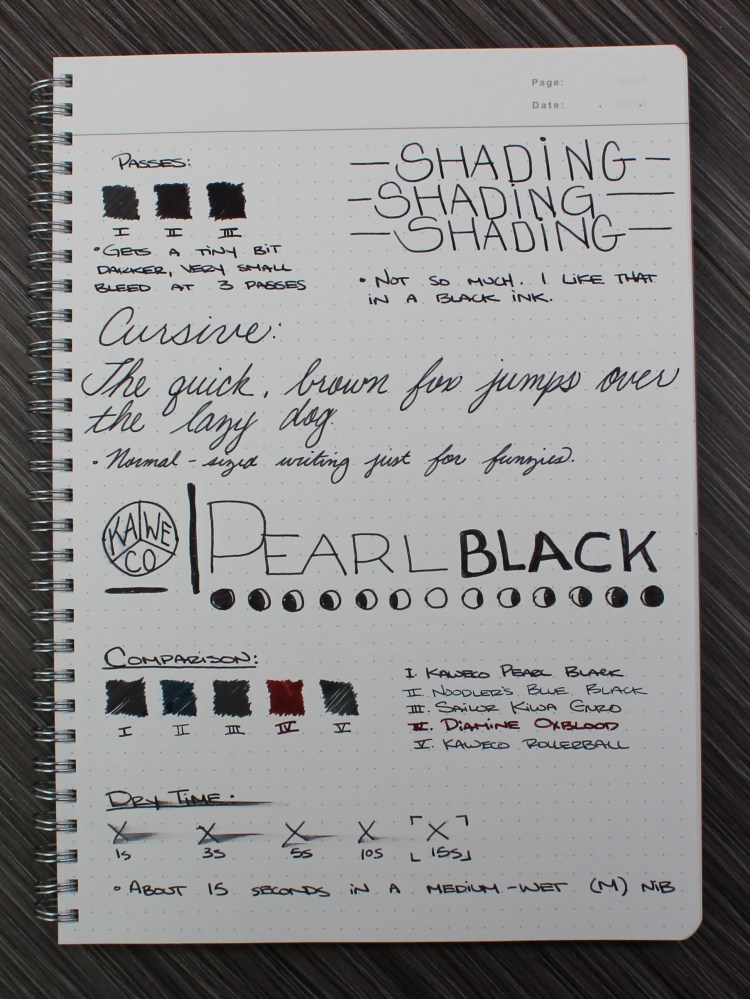 Page:
Date: . .
PASSES:
I II III
•GETS A TINY BIT
DARKER, VERY SMALL
BLEED AT 3 PASSES
—SHADING—
—SHADING—
—SHADING—
• NOT SO MUCH. I LIKE THAT
IN A BLACK INK.
Cursive:
The quick, brown fox jumps over
the lazy dog.
• Normal-sized writing just for funzies.
KAWE
CO
PEARL BLACK
COMPARISON:
I II III IV V
I. KAWECO PEARL BLACK
II. NOODLER'S BLUE BLACK
III. SAILOR KIWA GURO
IV. DIAMINE OXBLOOD
V. KAWECO ROLLERBALL
DRY TIME:
X X X X X
1s 3s 5s 10s 15s
• ABOUT 15 SECONDS IN A MEDIUM-WET (M) NIB